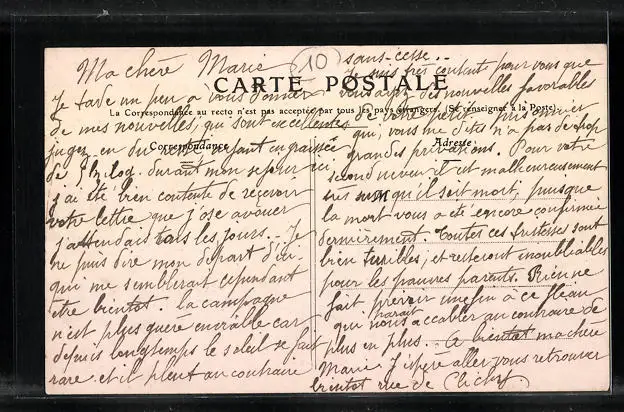 Ma chère Marie
10
CARTE POSTALE
La Correspondance au recto n'est pas acceptée par tous les pays étrangers. (Se renseigner à la Poste)
Correspondance
Adresse
Je tarde un peu à vous donner
de mes nouvelles, qui sont excellentes
jugez en du reste, enfant engraissée
de durant mon séjour ici,
j'ai été bien contente de recevoir
votre lettre que j'ose avouer
j'attendais tous les jours. Je
ne puis dire mon départ d'ici
qui me semblerait cependant
être bientôt. la campagne
n'est plus guère enviable car
depuis longtemps le soleil se fait
rare et il pleut au contraire
sans-cesse..
Je suis très contente pour vous que
vous ayez des nouvelles favorables
de votre petit prisonnier
qui, vous me dites n'a pas de trop
grandes privations. Pour votre
second neveu il est malheureusement
sûr qu'il soit mort, puisque
la mort vous a été encore confirmée
dernièrement. Toutes ces tristesses sont
bien terribles, et resteront inoubliables
pour les pauvres parents. Rien ne
fait prévoir une fin à ce fléau
qui paraît nous accabler au contraire de
plus en plus. A bientôt ma chère
Marie. J'espère aller vous retrouver
bientôt rue de Clichy